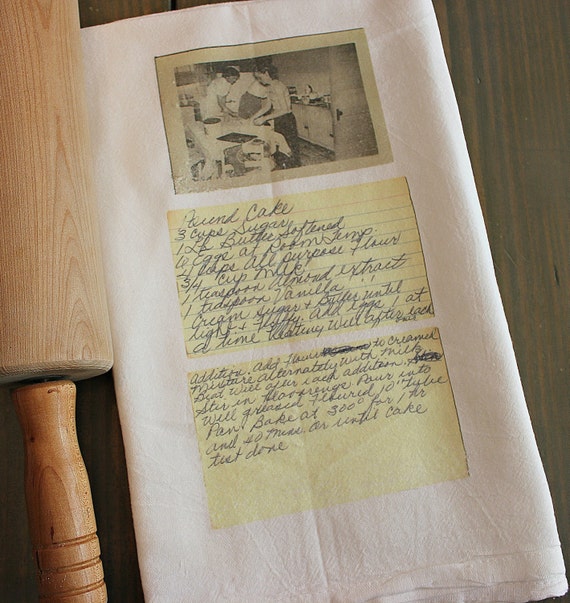 Pound Cake
3 cups Sugar
1 Lb Butter Softened
6 Eggs at Room Temp.
4 cups All purpose Flour
3/4 cup Milk
1 teaspoon Almond extract
1 teaspoon Vanilla
Cream Sugar & Butter until
Light & Fluffy. Add Eggs 1 at
a time Beating Well after each
addition. Add flour to creamed
Mixture alternately with Milk.
Beat Well after each addition.
Stir in flavorings Pour into
Well greased Floured 10" tube
Pan. Bake at 300° for 1 Hr
and 40 mins. or until cake
test done